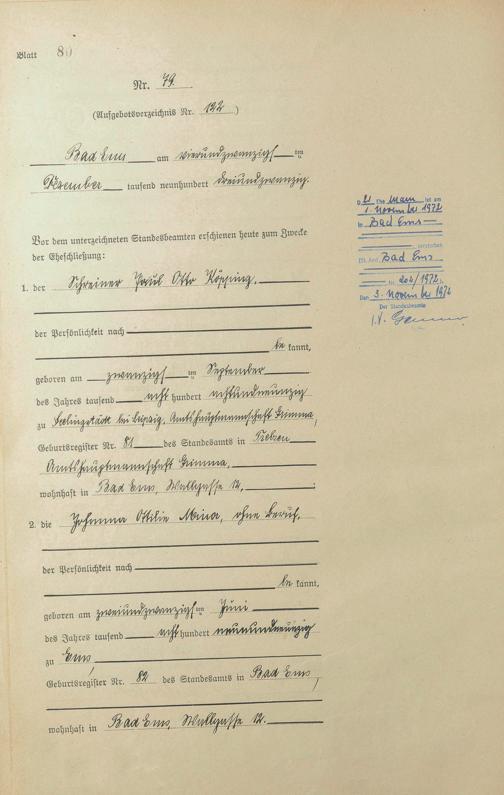 Blatt 80
Nr. 79.
(Aufgebotsverzeichnis Nr. 122.)
Bad Ems am vierundzwanzigsten
Dezember tausend neunhundert dreiundzwanzig.
Vor dem unterzeichneten Standesbeamten erschienen heute zum Zwecke
der Eheschließung:
1. der Schreiner Paul Otto Köpping,
der Persönlichkeit nach
be kannt,
geboren am zwanzigsten September
des Jahres tausend acht hundert achtundneunzig
zu Seelingstädt bei Leipzig, Amtshauptmannschaft Grimma,
Geburtsregister Nr. 81 des Standesamts in Trebsen
Amtshauptmannschaft Grimma,
wohnhaft in Bad Ems, Wallgasse 12,
2. die Johanna Ottilie Mina, ohne Beruf,
der Persönlichkeit nach
be kannt,
geboren am zweiundzwanzigsten Juni
des Jahres tausend acht hundert neunundneunzig
zu Ems,
Geburtsregister Nr. 82 des Standesamts in Bad Ems,
wohnhaft in Bad Ems, Wallgasse 12.
Ehe ist am
1. November 1972
in Bad Ems
verstorben
Bad Ems
Nr. 204/1972.
Den 3. November 1972
Der Standesbeamte
I.V.